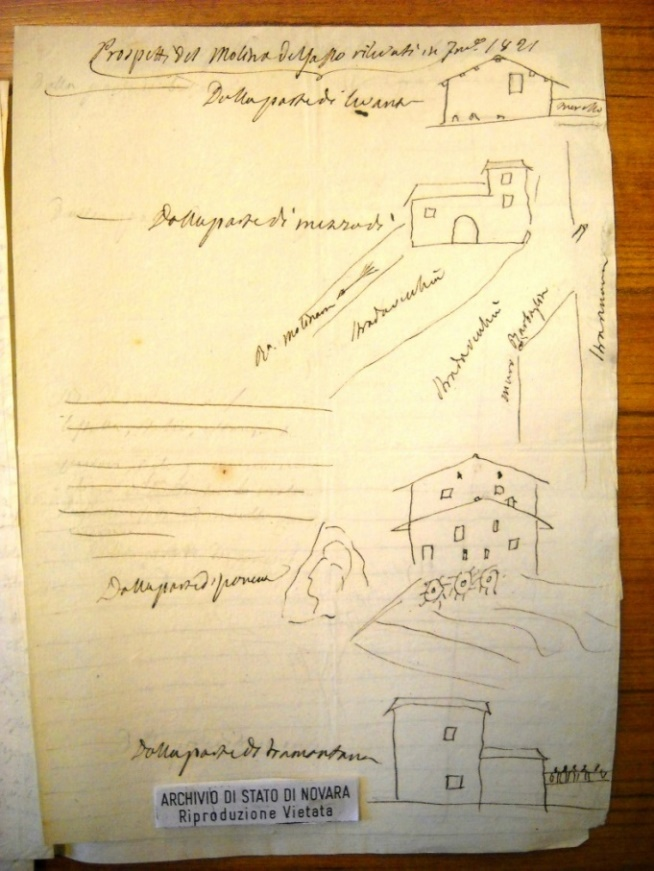 Prospetti del Molino del Sasso rilevati in 1821
Dalla parte di
Dalla parte di mezzodì
R.a Molinara
Strada vecchia
Strada vecchia
muro
Strada nuova
Dalla parte di ponente
Dalla parte di tramontana
ARCHIVIO DI STATO DI NOVARA
Riproduzione Vietata